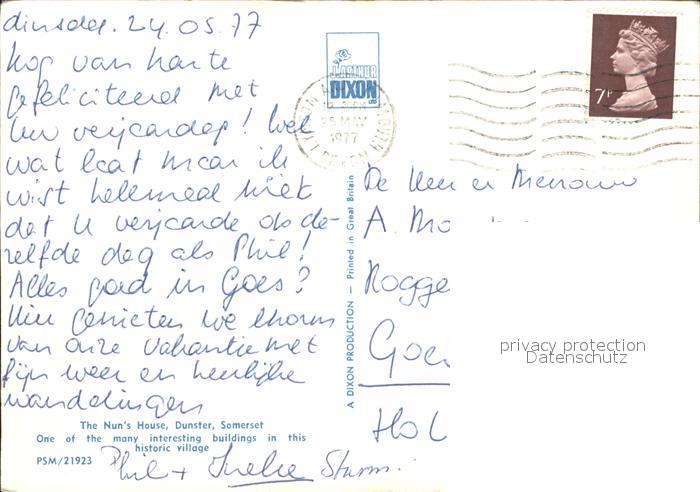 dinsdag. 24.05.77
nog van harte
gefeliciteerd met
Uw verjaardag! Wel
wat laat maar ik
wist helemaal niet
dat U verjaarde op de-
zelfde dag als Phil!
Alles goed in Goes?
Hier genieten we enorm
van onze vakantie met
fijn weer en heerlijke
wandelingen
The Nun's House, Dunster, Somerset
One of the many interesting buildings in this
historic village
PSM/21923
Phil + Ineke Sturm.
J. ARTHUR
DIXON
LTD
25 MAY
1977
7P
A DIXON PRODUCTION — Printed in Great Britain
De Heer en Mevrouw
A. Mo
Rogge
Goe
Hol
privacy protection
Datenschutz